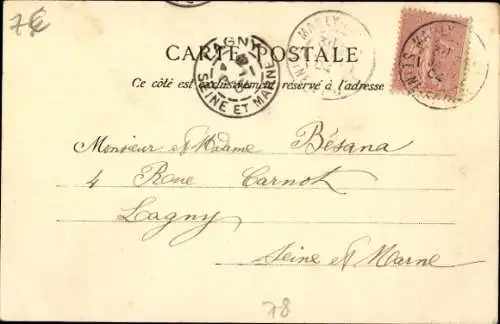 7€
CARTE POSTALE
Ce côté est exclusivement réservé à l'adresse
GNY
SEINE ET MARNE
MARLY
MARLY
04
Monsieur et Madame Bésana
4 Rue Carnot
Lagny
Seine et Marne
78